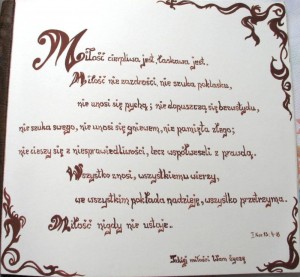 Miłość cierpliwa jest, łaskawa jest.
Miłość nie zazdrości, nie szuka poklasku,
nie unosi się pychą; nie dopuszcza się bezwstydu,
nie szuka swego, nie unosi się gniewem, nie pamięta złego;
nie cieszy się z niesprawiedliwości, lecz współweseli z prawdą.
Wszystko znosi, wszystkiemu wierzy,
we wszystkim pokłada nadzieję, wszystko przetrzyma.
Miłość nigdy nie ustaje..
1 Kor 13, 4-8
Takiej miłości Wam życzy